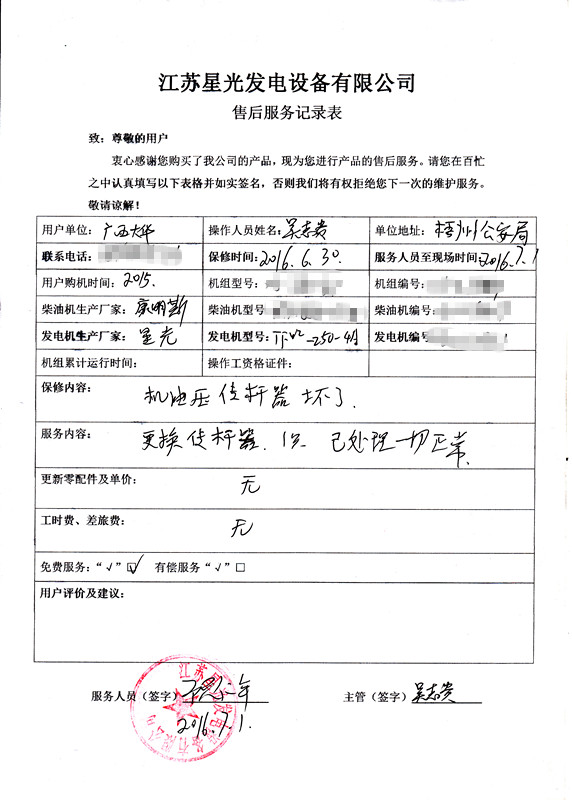 江苏星光发电设备有限公司
售后服务记录表
致：尊敬的用户
衷心感谢您购买了我公司的产品，现为您进行产品的售后服务。请您在百忙
之中认真填写以下表格并如实签名，否则我们将有权拒绝您下一次的维护服务。
敬请谅解！
用户单位：广西大华 操作人员姓名：吴志贵 单位地址：梧州公安局
联系电话： 保修时间：2016.6.30. 服务人员至现场时间：2016.7.1
用户购机时间：2015. 机组型号： 机组编号：
柴油机生产厂家：康明斯 柴油机型号： 柴油机编号：
发电机生产厂家：星光 发电机型号： 发电机编号
机组累计运行时间： 操作工资格证件：
保修内容： 机油压传杆器坏了.
服务内容： 更换传杆器. 已处理一切正常.
更新零配件及单价： 无
工时费、差旅费： 无
免费服务：“√”☑ 有偿服务“√”□
用户评价及建议：
服务人员（签字） 主管（签字）吴志贵
2016.7.1.